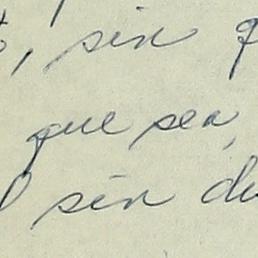 , sin q
que sea,
sin du